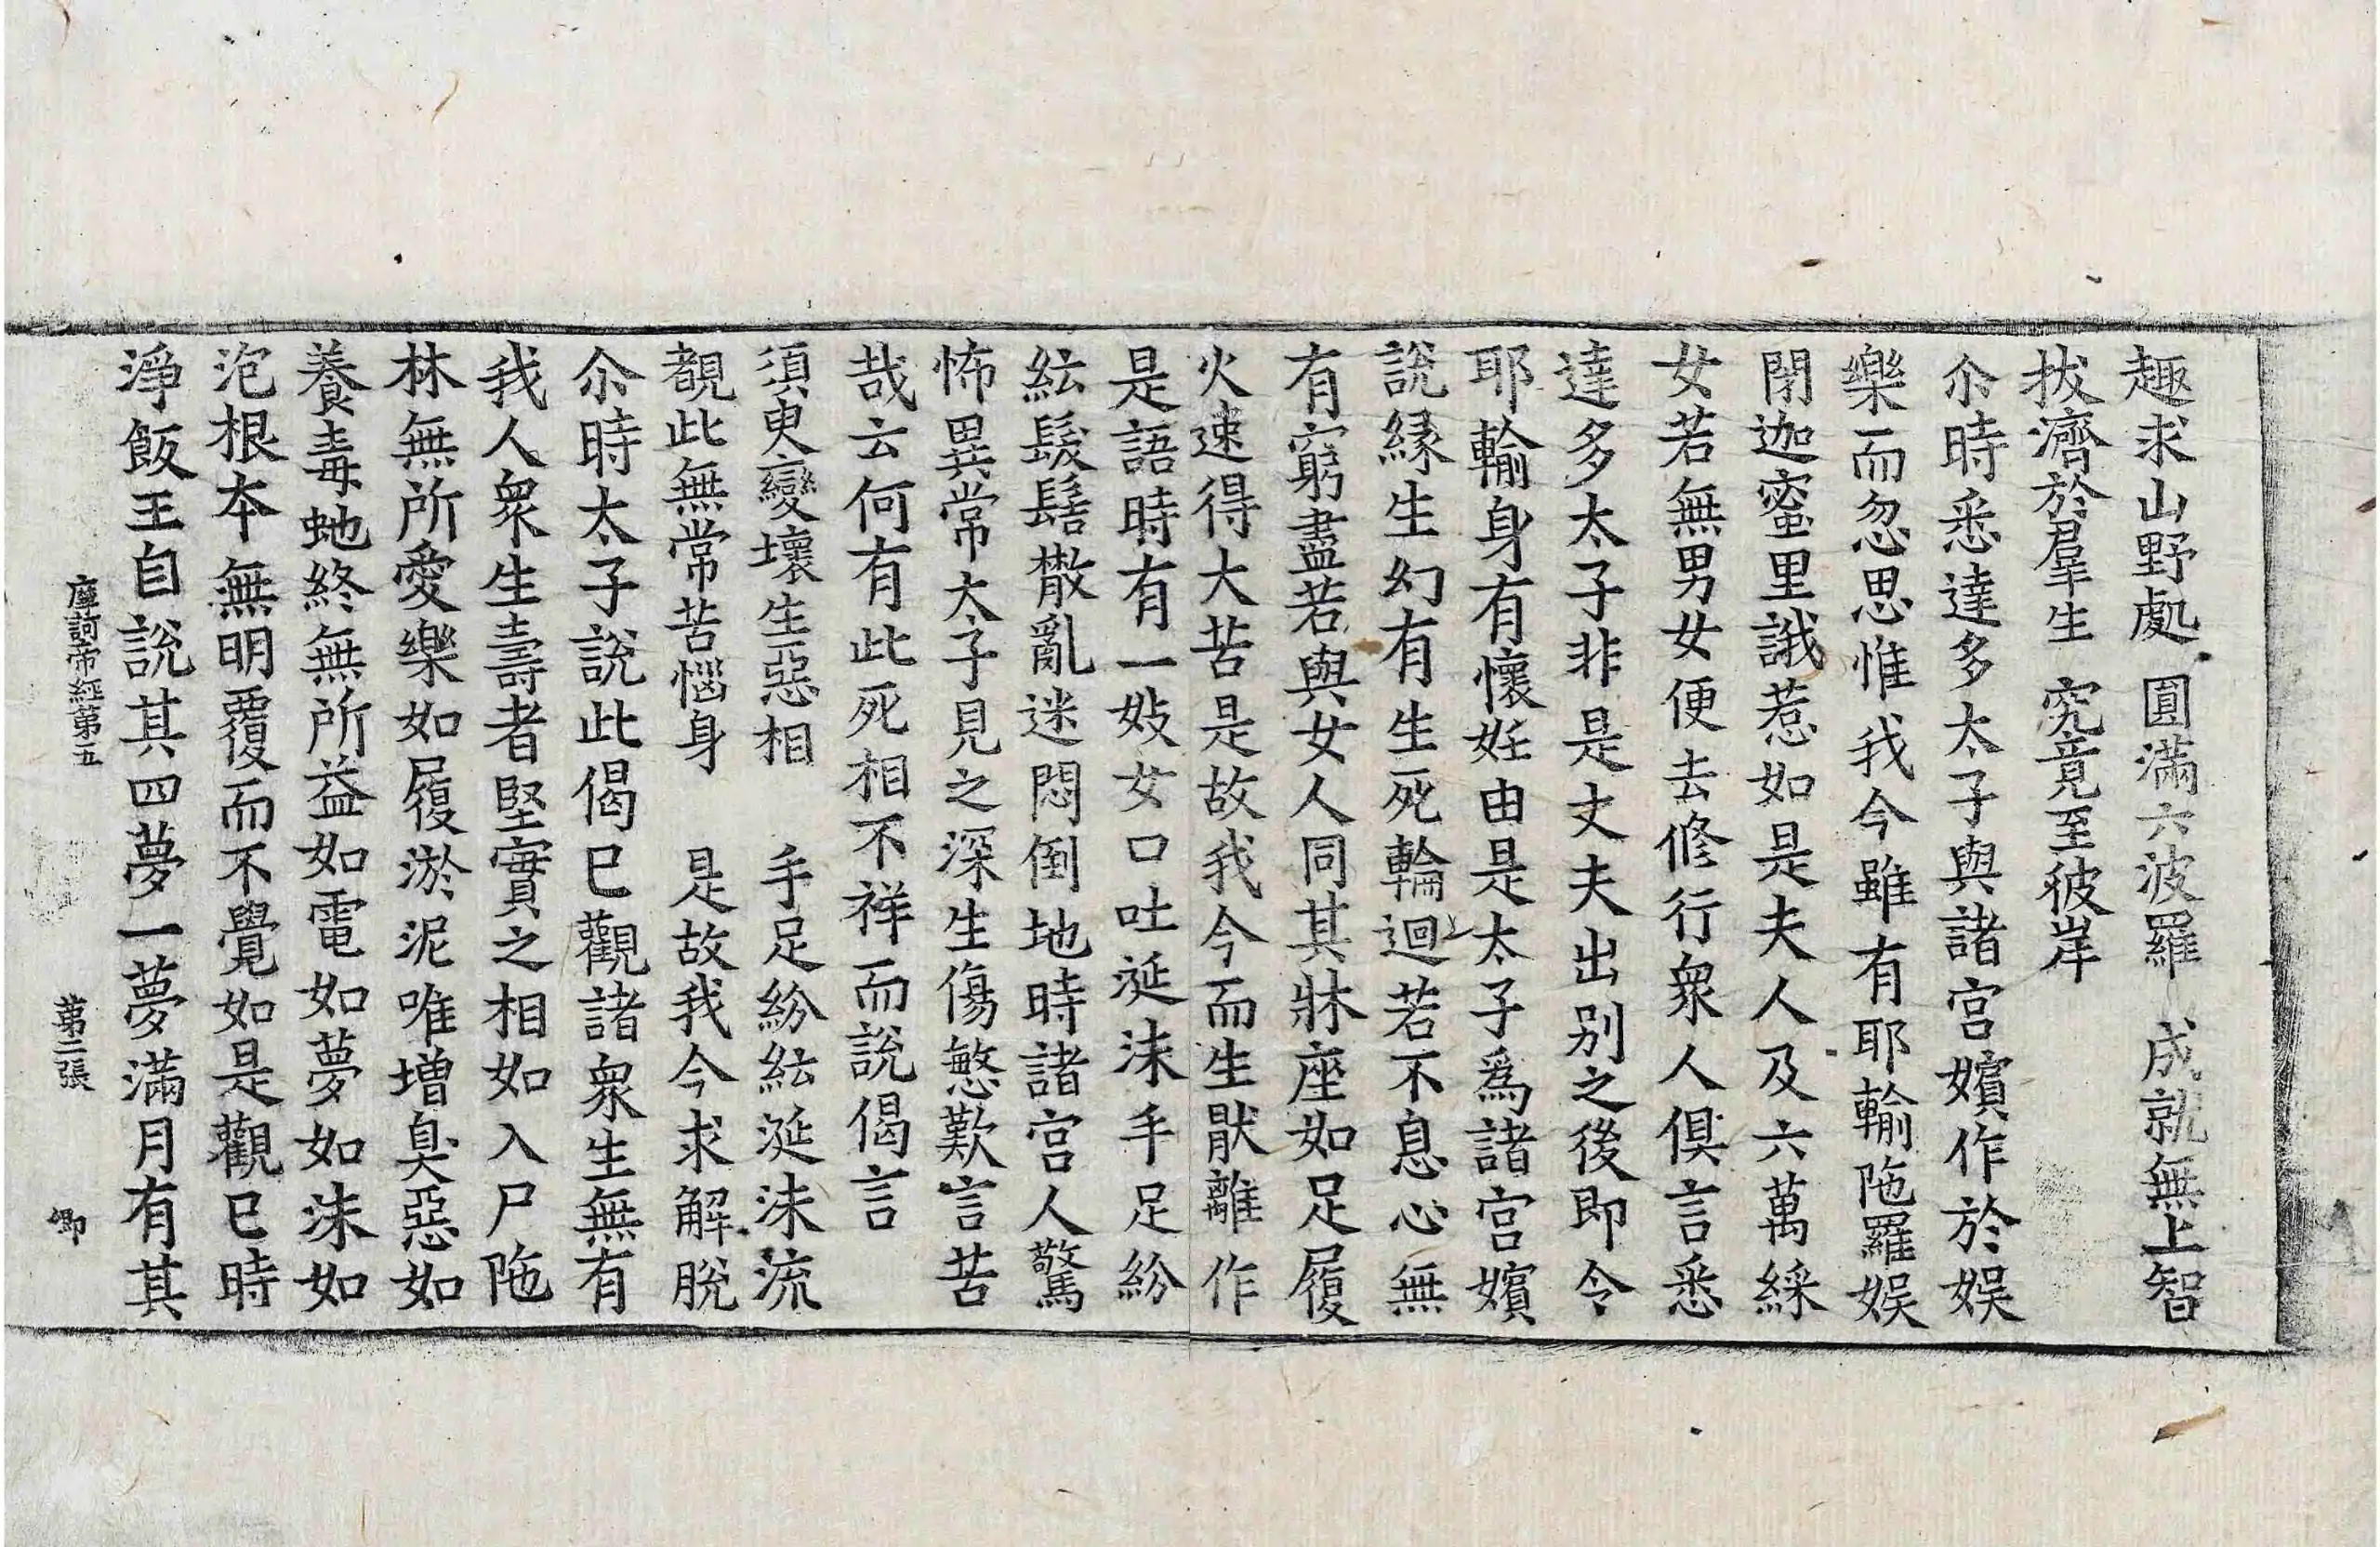 趣求山野處　圓滿六波羅　成就無上智
拔濟於羣生　究竟至彼岸
尒時悉達多太子與諸宮嬪作於娛
樂而忽思惟我今雖有耶輸陁羅娛
閉迦蜜里誐惹如是夫人及六萬綵
女若無男女便去修行衆人俱言悉
達多太子非是丈夫出別之後即令
耶輸身有懷妊由是太子爲諸宮嬪
說緣生幻有生死輪迴若不息心無
有窮盡若與女人同其牀座如足履
火速得大苦是故我今而生猒離作
是語時有一妓女口吐涎沫手足紛
紜髮髻散亂迷悶倒地時諸宮人驚
怖異常太子見之深生傷慜歎言苦
哉云何有此死相不祥而說偈言
須臾變壞生惡相　手足紛紜涎沫流
覩此無常苦惱身　是故我今求解脫
尒時太子說此偈已觀諸衆生無有
我人衆生壽者堅實之相如入尸陁
林無所愛樂如履淤泥唯增臭惡如
養毒虵終無所益如電如夢如沫如
泡根本無明覆而不覺如是觀已時
淨飯王自說其四夢一夢滿月有其
摩訶帝經第五　第二張　卿